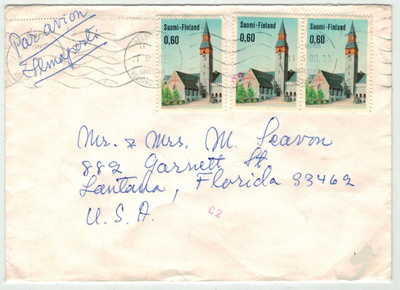 Par avion
Lentoposti
Suomi-Finland
0,60
Suomi-Finland
0,60
Suomi-Finland
0,60
Mr. & Mrs. M. Seavon
882 Garnett St.
Lantana, Florida 33462
U.S.A.
C2